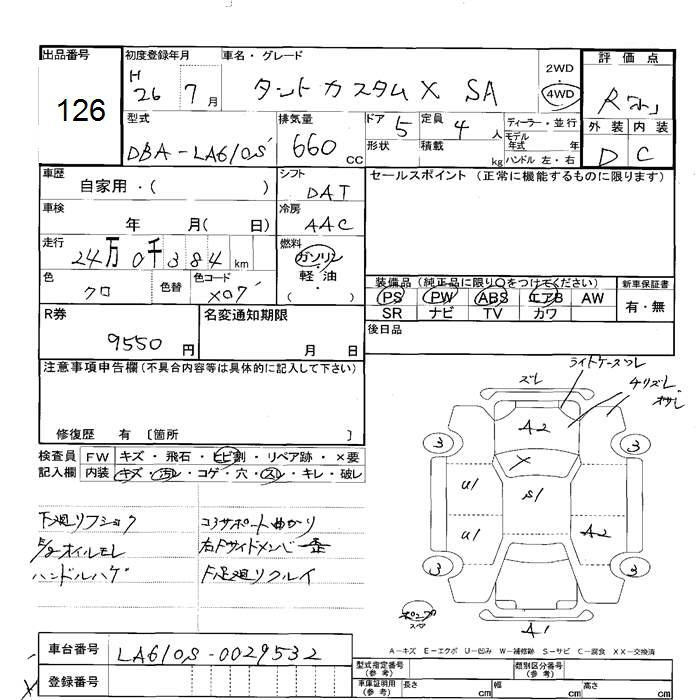 出品番号 初度登録年月 車名・グレード 2WD・4WD 評価点
126
H 26 7月 タント カスタム X SA
型式 排気量 ドア 5 定員 4人 ディーラー・並行
外装 内装
DBA-LA610S 660 CC 形状 積載 kg モデル年式 年
ハンドル 左・右
D C
車歴 シフト セールスポイント (正常に機能するものに限ります)
自家用・( ) DAT
車検 冷房
年 月( 日) AAC
走行 燃料
24万0千384km ガソリン・軽油・( )
色 色替 色コード 装備品(純正品に限り○をつけてください) 新車保証書
クロ X07 PS PW ABS エアB AW 有・無
SR ナビ TV カワ
R券 名変通知期限 後日品
9550円 月 日
注意事項申告欄(不具合内容等は具体的に記入して下さい)
修復歴 有 〔箇所 〕
検査員 FW キズ・飛石・ヒビ割・リペア跡・×要
記入欄 内装 キズ・汚レ・コゲ・穴・スレ・キレ・破レ
下廻リフショク コアサポート曲がり
オイルモレ 右Fサイドメンバー歪
ハンドルハゲ F足廻リクルイ
ズレ
ライトケースツレ
A2
3 3
X
U1 S1
U1 A2
3 3
A1
A-キズ E-エクボ U-凹み W-補修跡 S-サビ C-腐食 XX-交換済
車台番号 LA610S-0029532
登録番号
型式指定番号(参考) 類別区分番号(参考)
車庫証明用(参考) 長さ cm 幅 cm 高さ cm